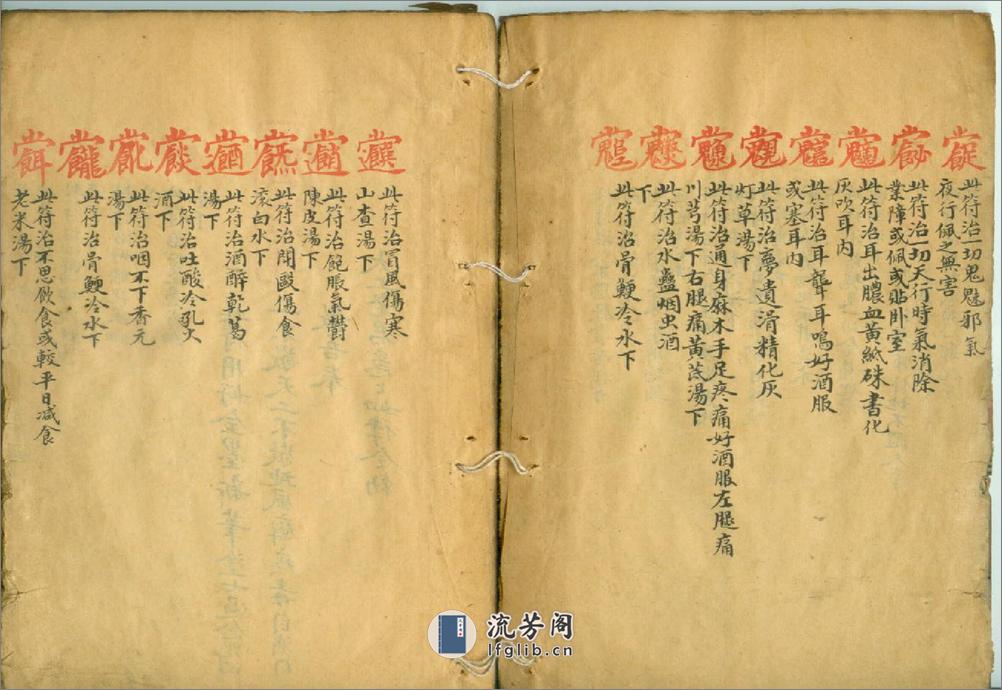 此符治一切鬼魅邪氣
夜行佩之無害
此符治一切天行時氣消除
業障或佩或貼卧室
此符治耳出膿血黃紙硃書化
灰吹耳內
此符治耳聾耳鳴好酒服
或塞耳內
此符治夢遺滑精化灰
灯草湯下
此符治通身麻木手足疼痛好酒服左腿痛
川芎湯下右腿痛黃芪湯下
此符治水蠱烟虫酒
下
此符治骨鯁冷水下
此符治冒風傷寒
山查湯下
此符治飽脹氣欝
陳皮湯下
此符治閉毆傷食
滾白水下
此符治酒醉乾葛
湯下
此符治吐酸冷乳火
酒下
此符治咽不下香元
湯下
此符治骨鯁冷水下
此符治不思飲食或較平日减食
老米湯下
流芳阁
lfglib.cn